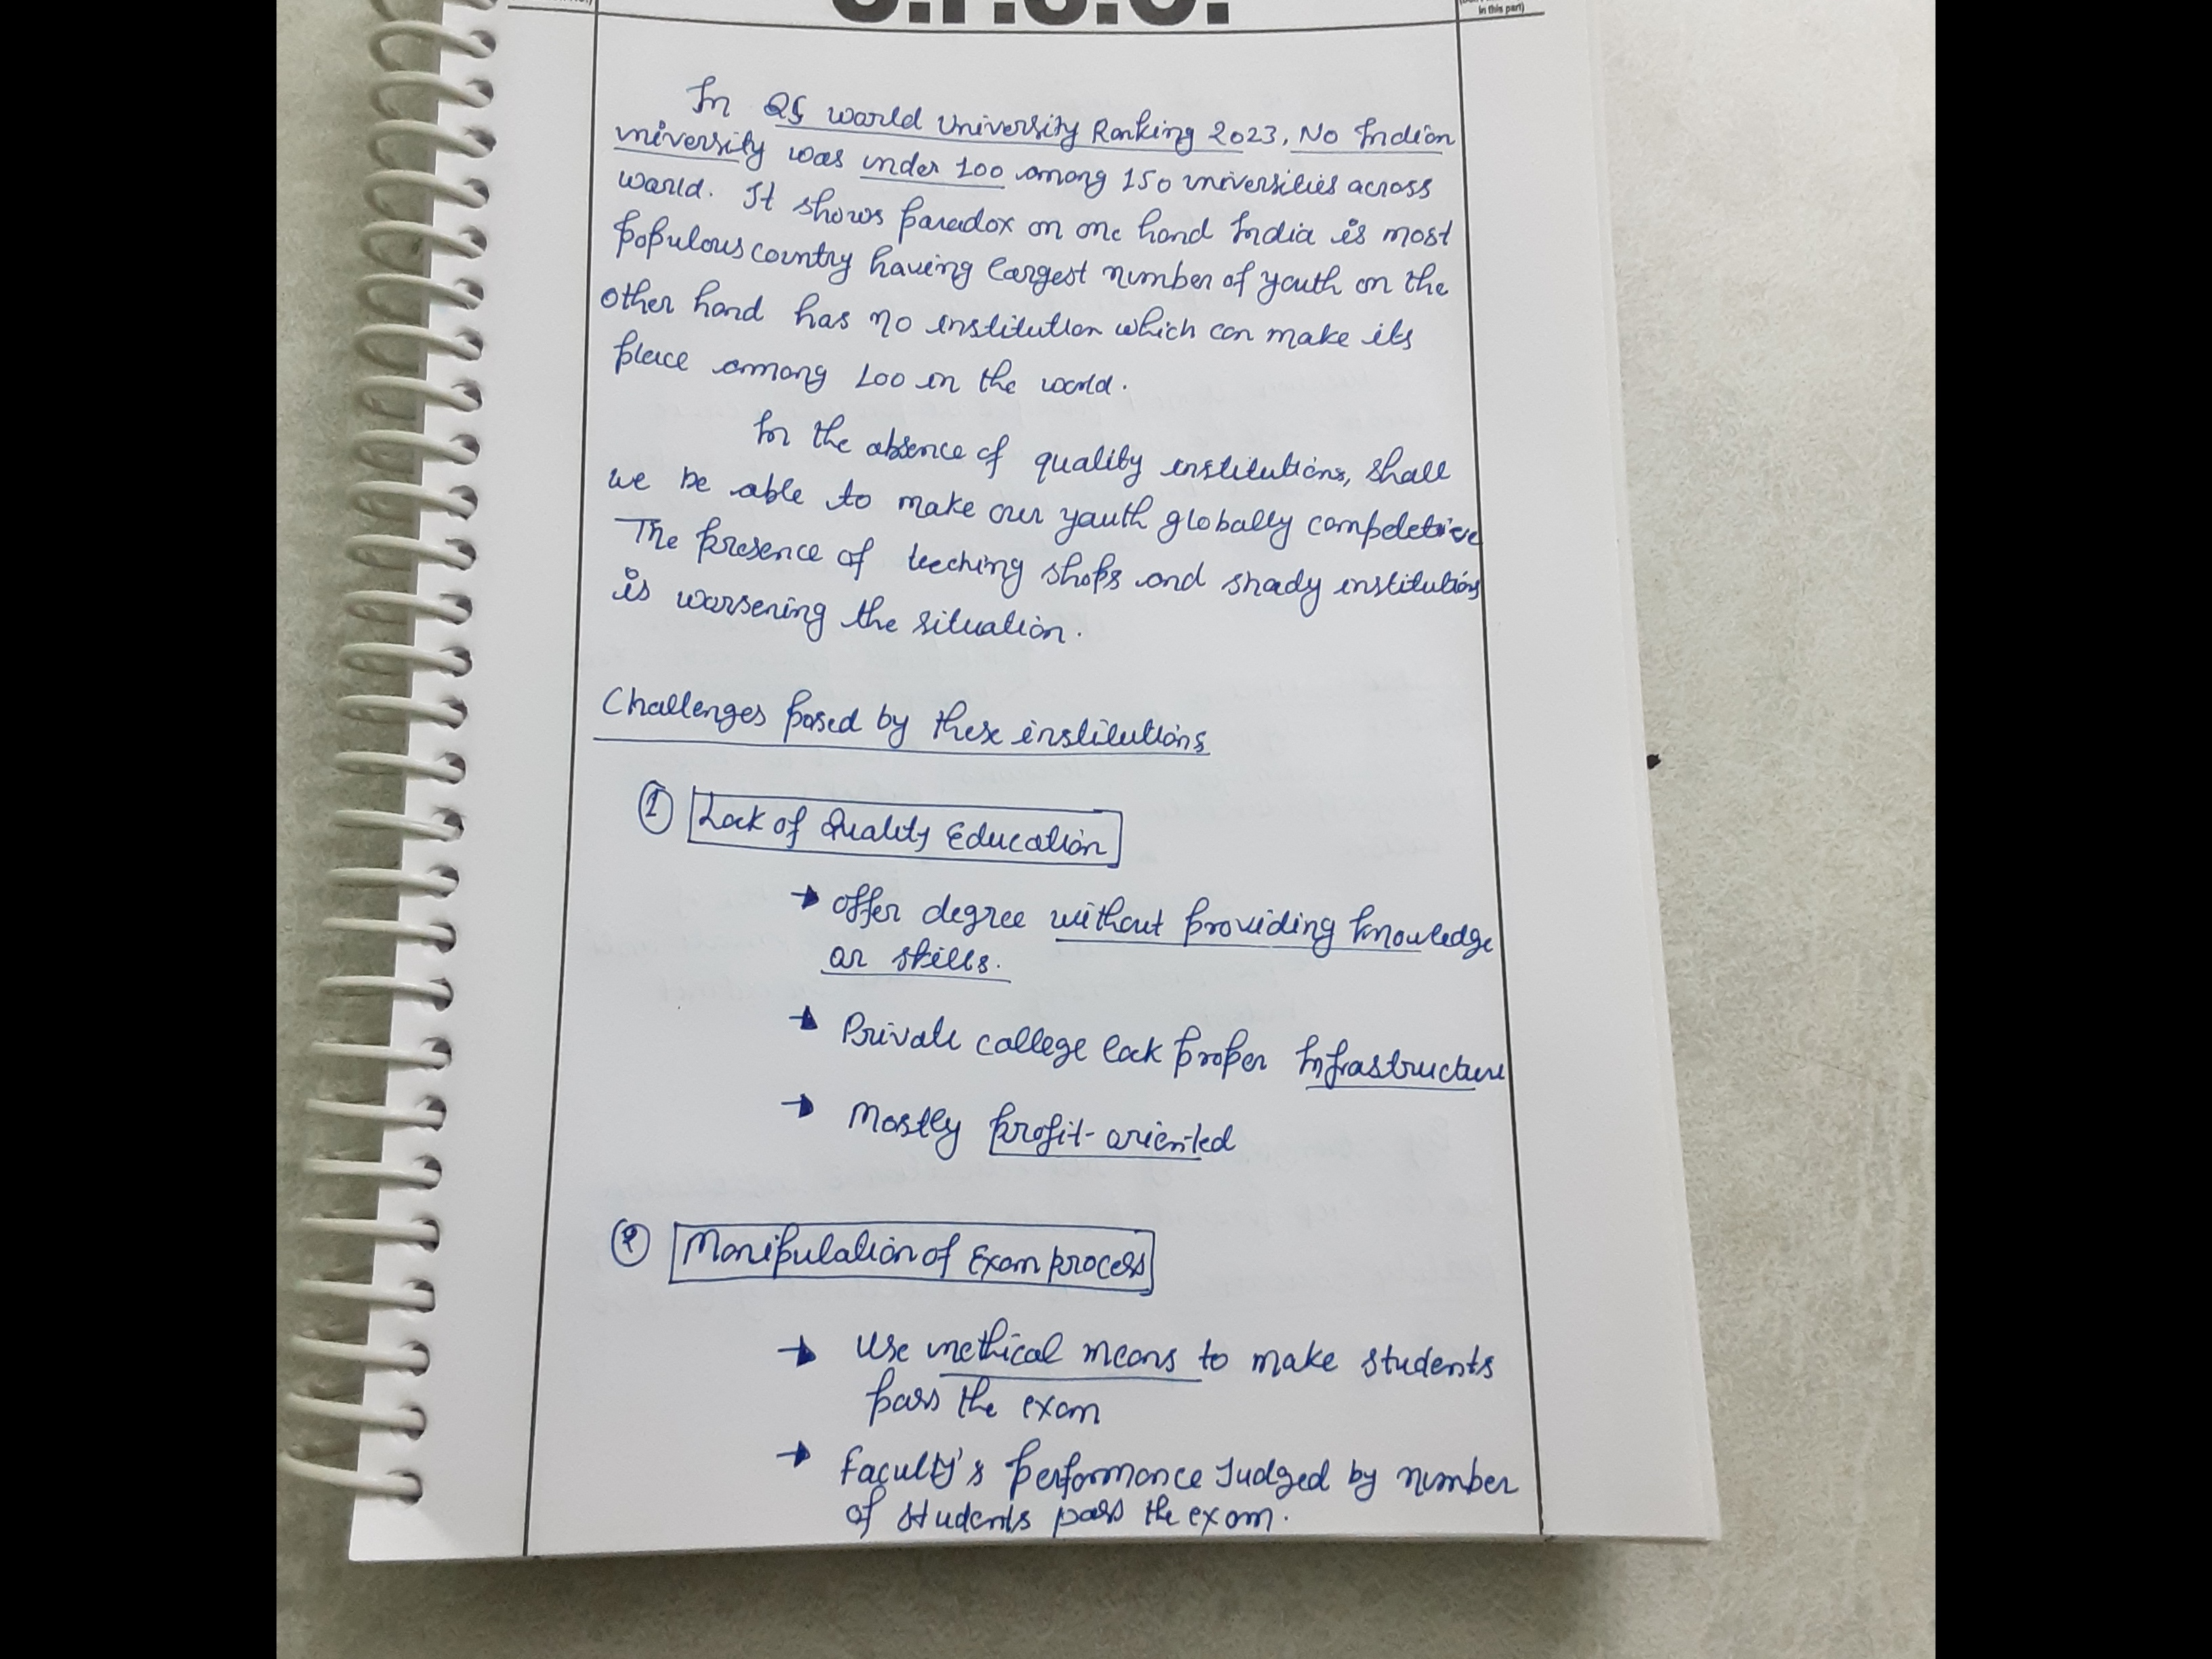 U.P.S.C.
in this part)
In QS world University Ranking 2023, No Indian
university was under 100 among 150 universities across
world. It shows paradox on one hand India is most
populous country having largest number of youth on the
other hand has no institution which can make its
place among 100 in the world.
In the absence of quality institutions, shall
we be able to make our youth globally competetive
The presence of teeching shops and shady institutions
is worsening the situation.
Challenges posed by these institutions
① Lack of Quality Education
→ offer degree without providing knowledge
or skills.
→ Private college lack proper Infrastructure
→ Mostly profit-oriented
② Manipulation of Exam process
→ Use unethical means to make students
pass the exam
→ Faculty's performance Judged by number
of students pass the exam.